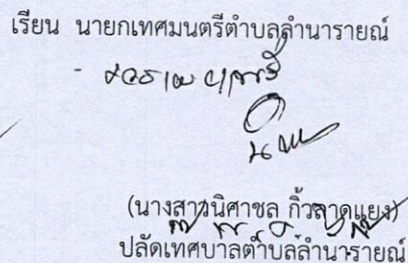 เรียน นายกเทศมนตรีตำบลลำนารายณ์
(นางสาวนิศาชล กิ้วลาดแยง)
ปลัดเทศบาลตำบลลำนารายณ์